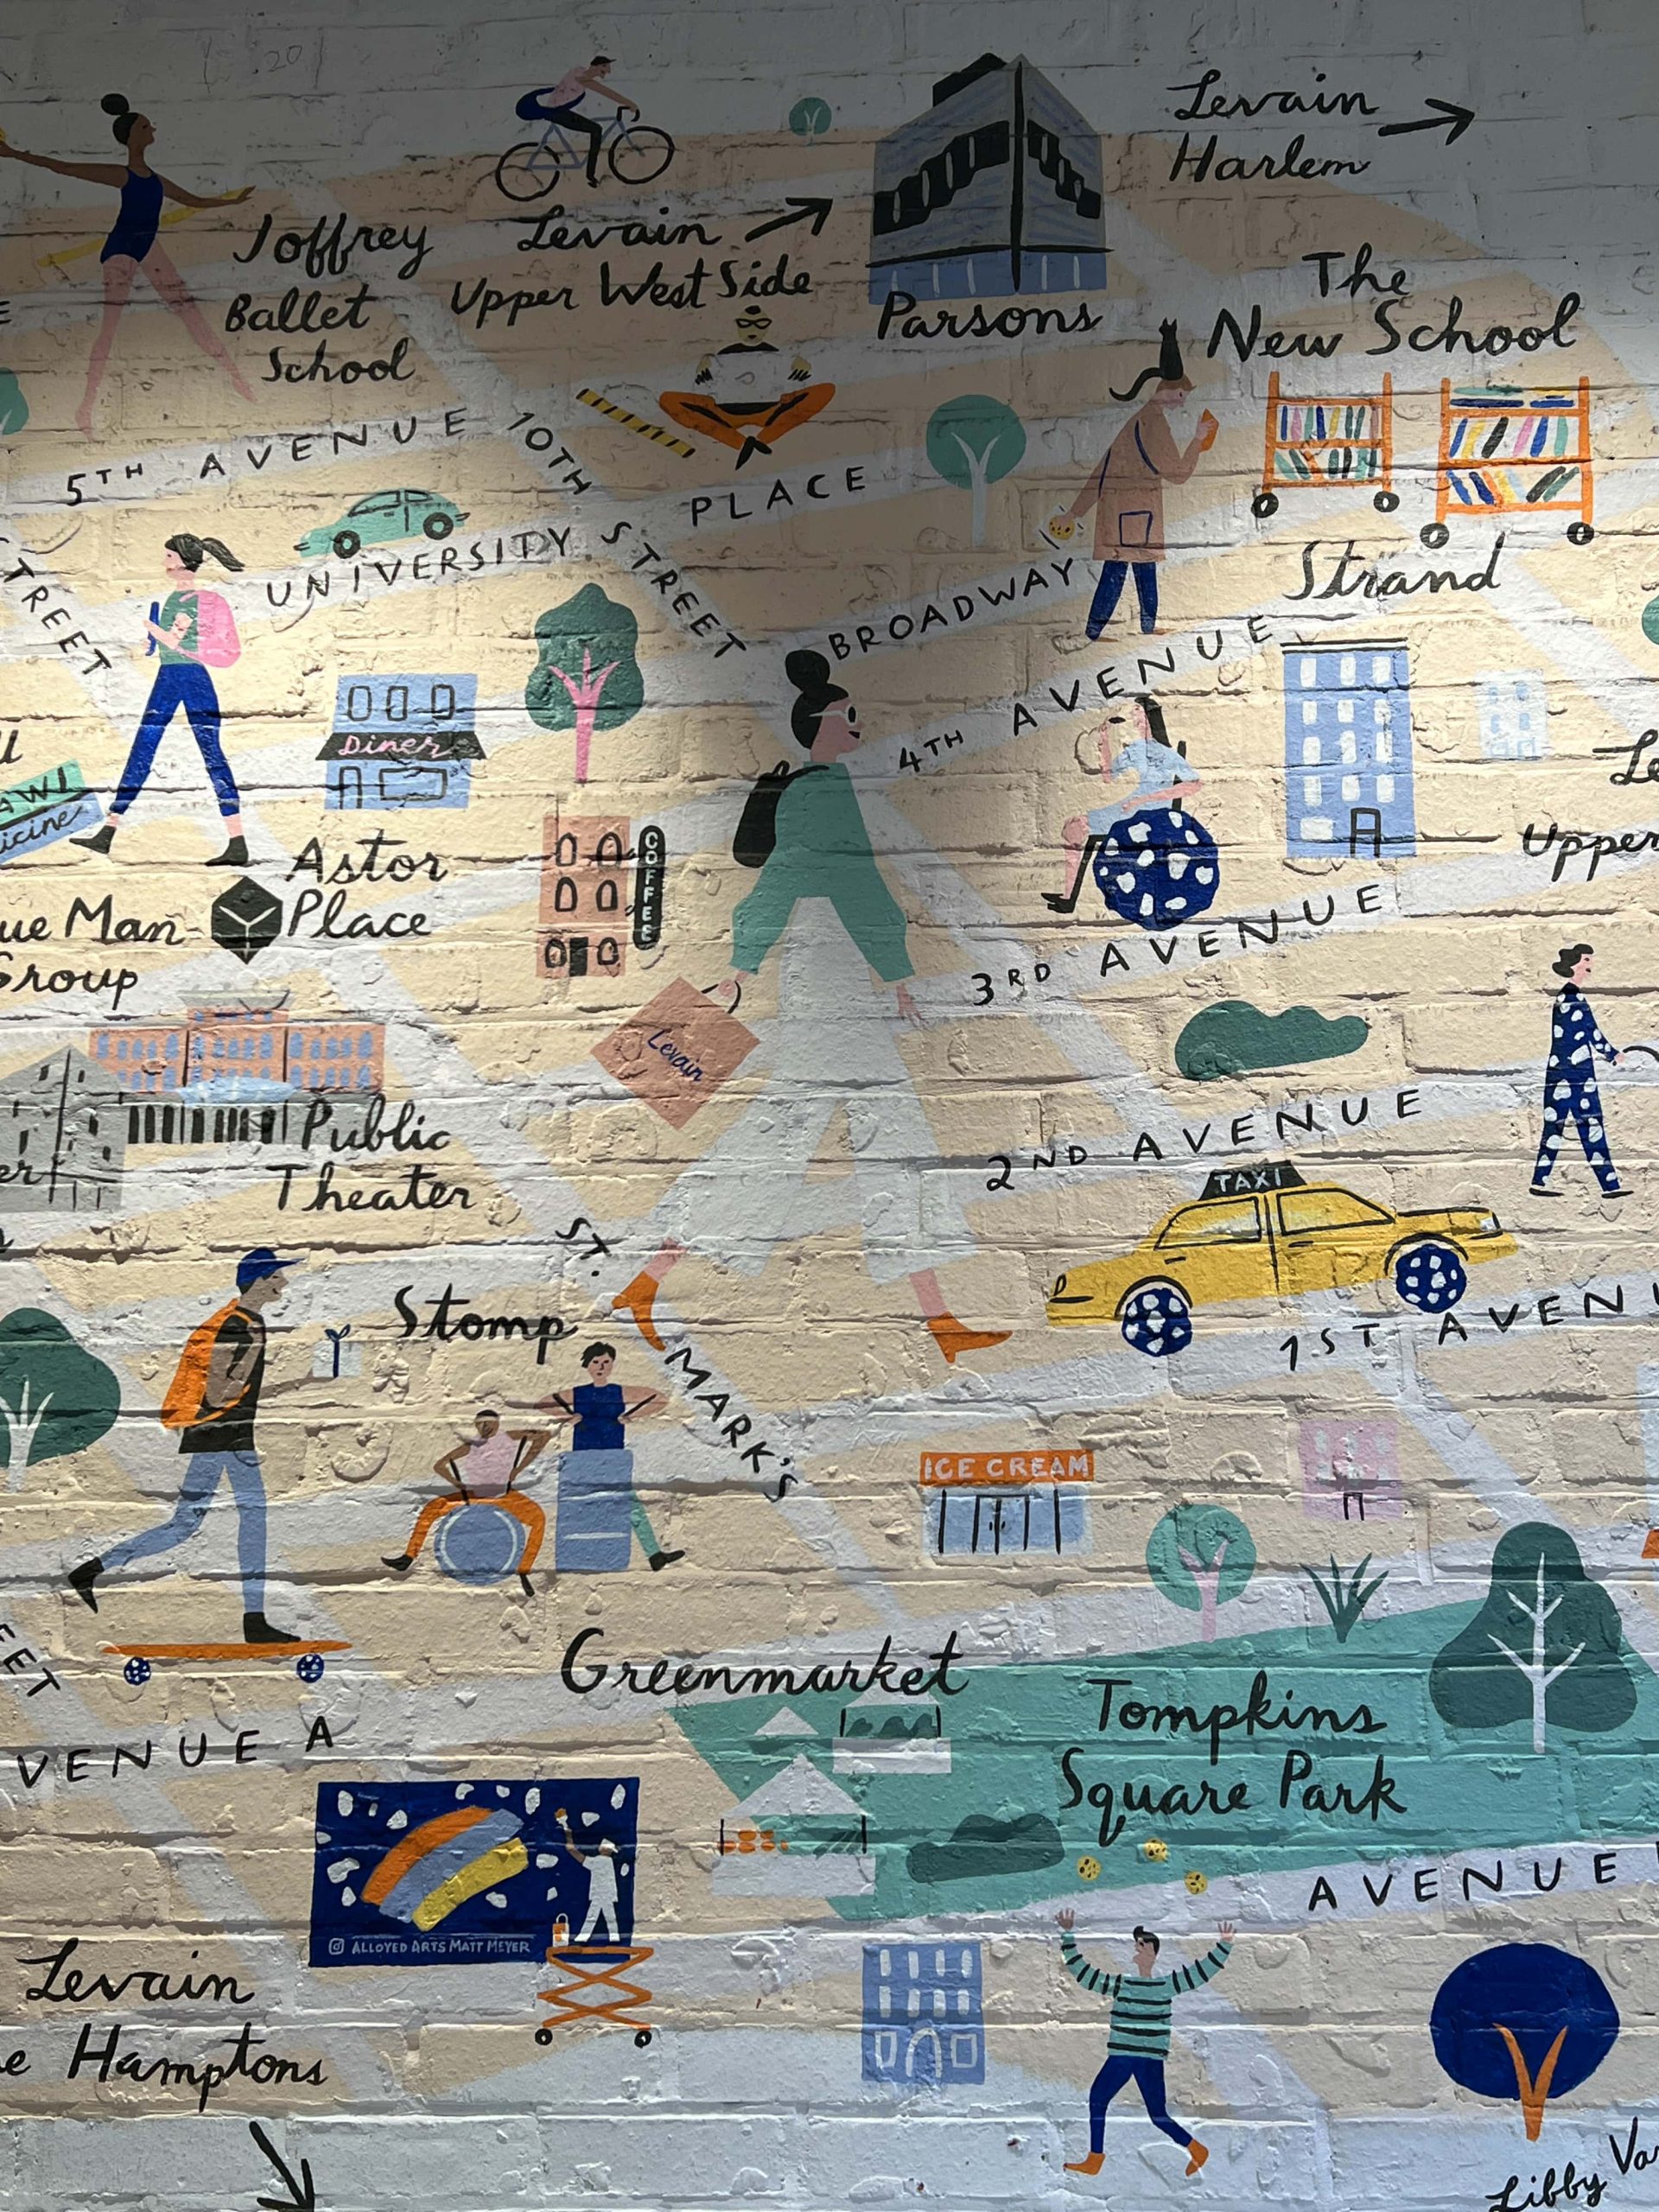 Levain
Harlem
Joffrey
Ballet
School
Levain
Upper West Side
Parsons
The
New School
5TH AVENUE
10TH STREET
UNIVERSITY PLACE
STREET
BROADWAY
Strand
4TH AVENUE
Diner
COFFEE
Astor
Place
Upper
3RD AVENUE
Man
Group
Levain
Public
Theater
2ND AVENUE
TAXI
1ST
ST. MARK'S
Stomp
ICE CREAM
Greenmarket
Tompkins
Square Park
AVENUE A
AVENUE
ALLOYED ARTS MATT MEYER
Levain
Hamptons
Libby